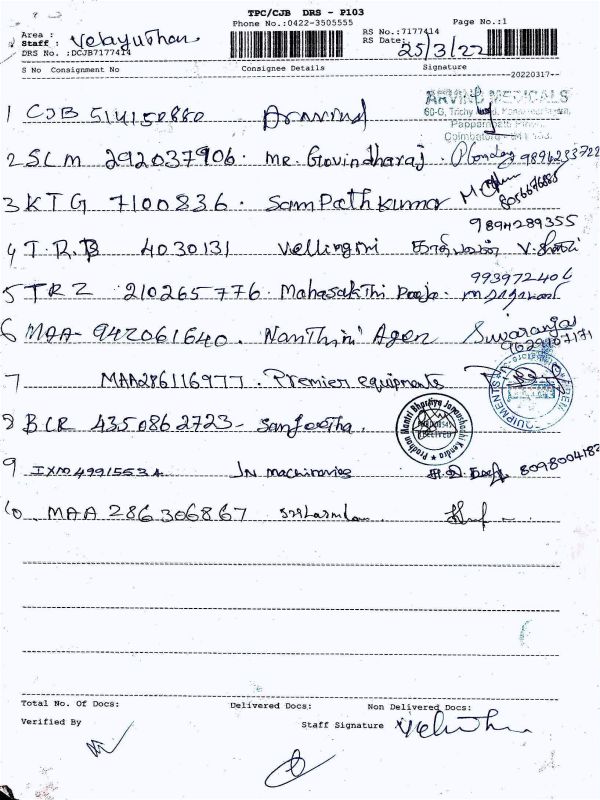 TPC/CJB DRS - P103
Phone No.:0422-3505555 Page No.:1
Area :
Staff : Velayuthan RS No.:7177414
RS Date: 25/3/22
DRS No. :DCJB7177414
S No Consignment No Consignee Details Signature
--20220317--
ARVIND MEDICALS
60-G, Trichy
Coimbatore
1 CJB 514150880 Aravind
2 SLM 292037906. Mr. Govindharaj. 9894233722
3 KTG 7100836. Sampathkumar 8056676885
9894289355
4 T.R.B 4030131 Vellingiri
993972406
5 TRZ 210265776. Mahasakthi Pooja.
6 MAA- 942061640. Nanthini Agen Suvaranjai
9629107171
7 MAA286116977. Premier equipments
8 BCR 4350862723- Sanjeetha.
Pradhan Mantri Bhartiya Janaushadhi Kendra
9 IXM 49915534 JN machinaries 8098004182
10. MAA 286306867
Total No. Of Docs: Delivered Docs: Non Delivered Docs:
Verified By Staff Signature